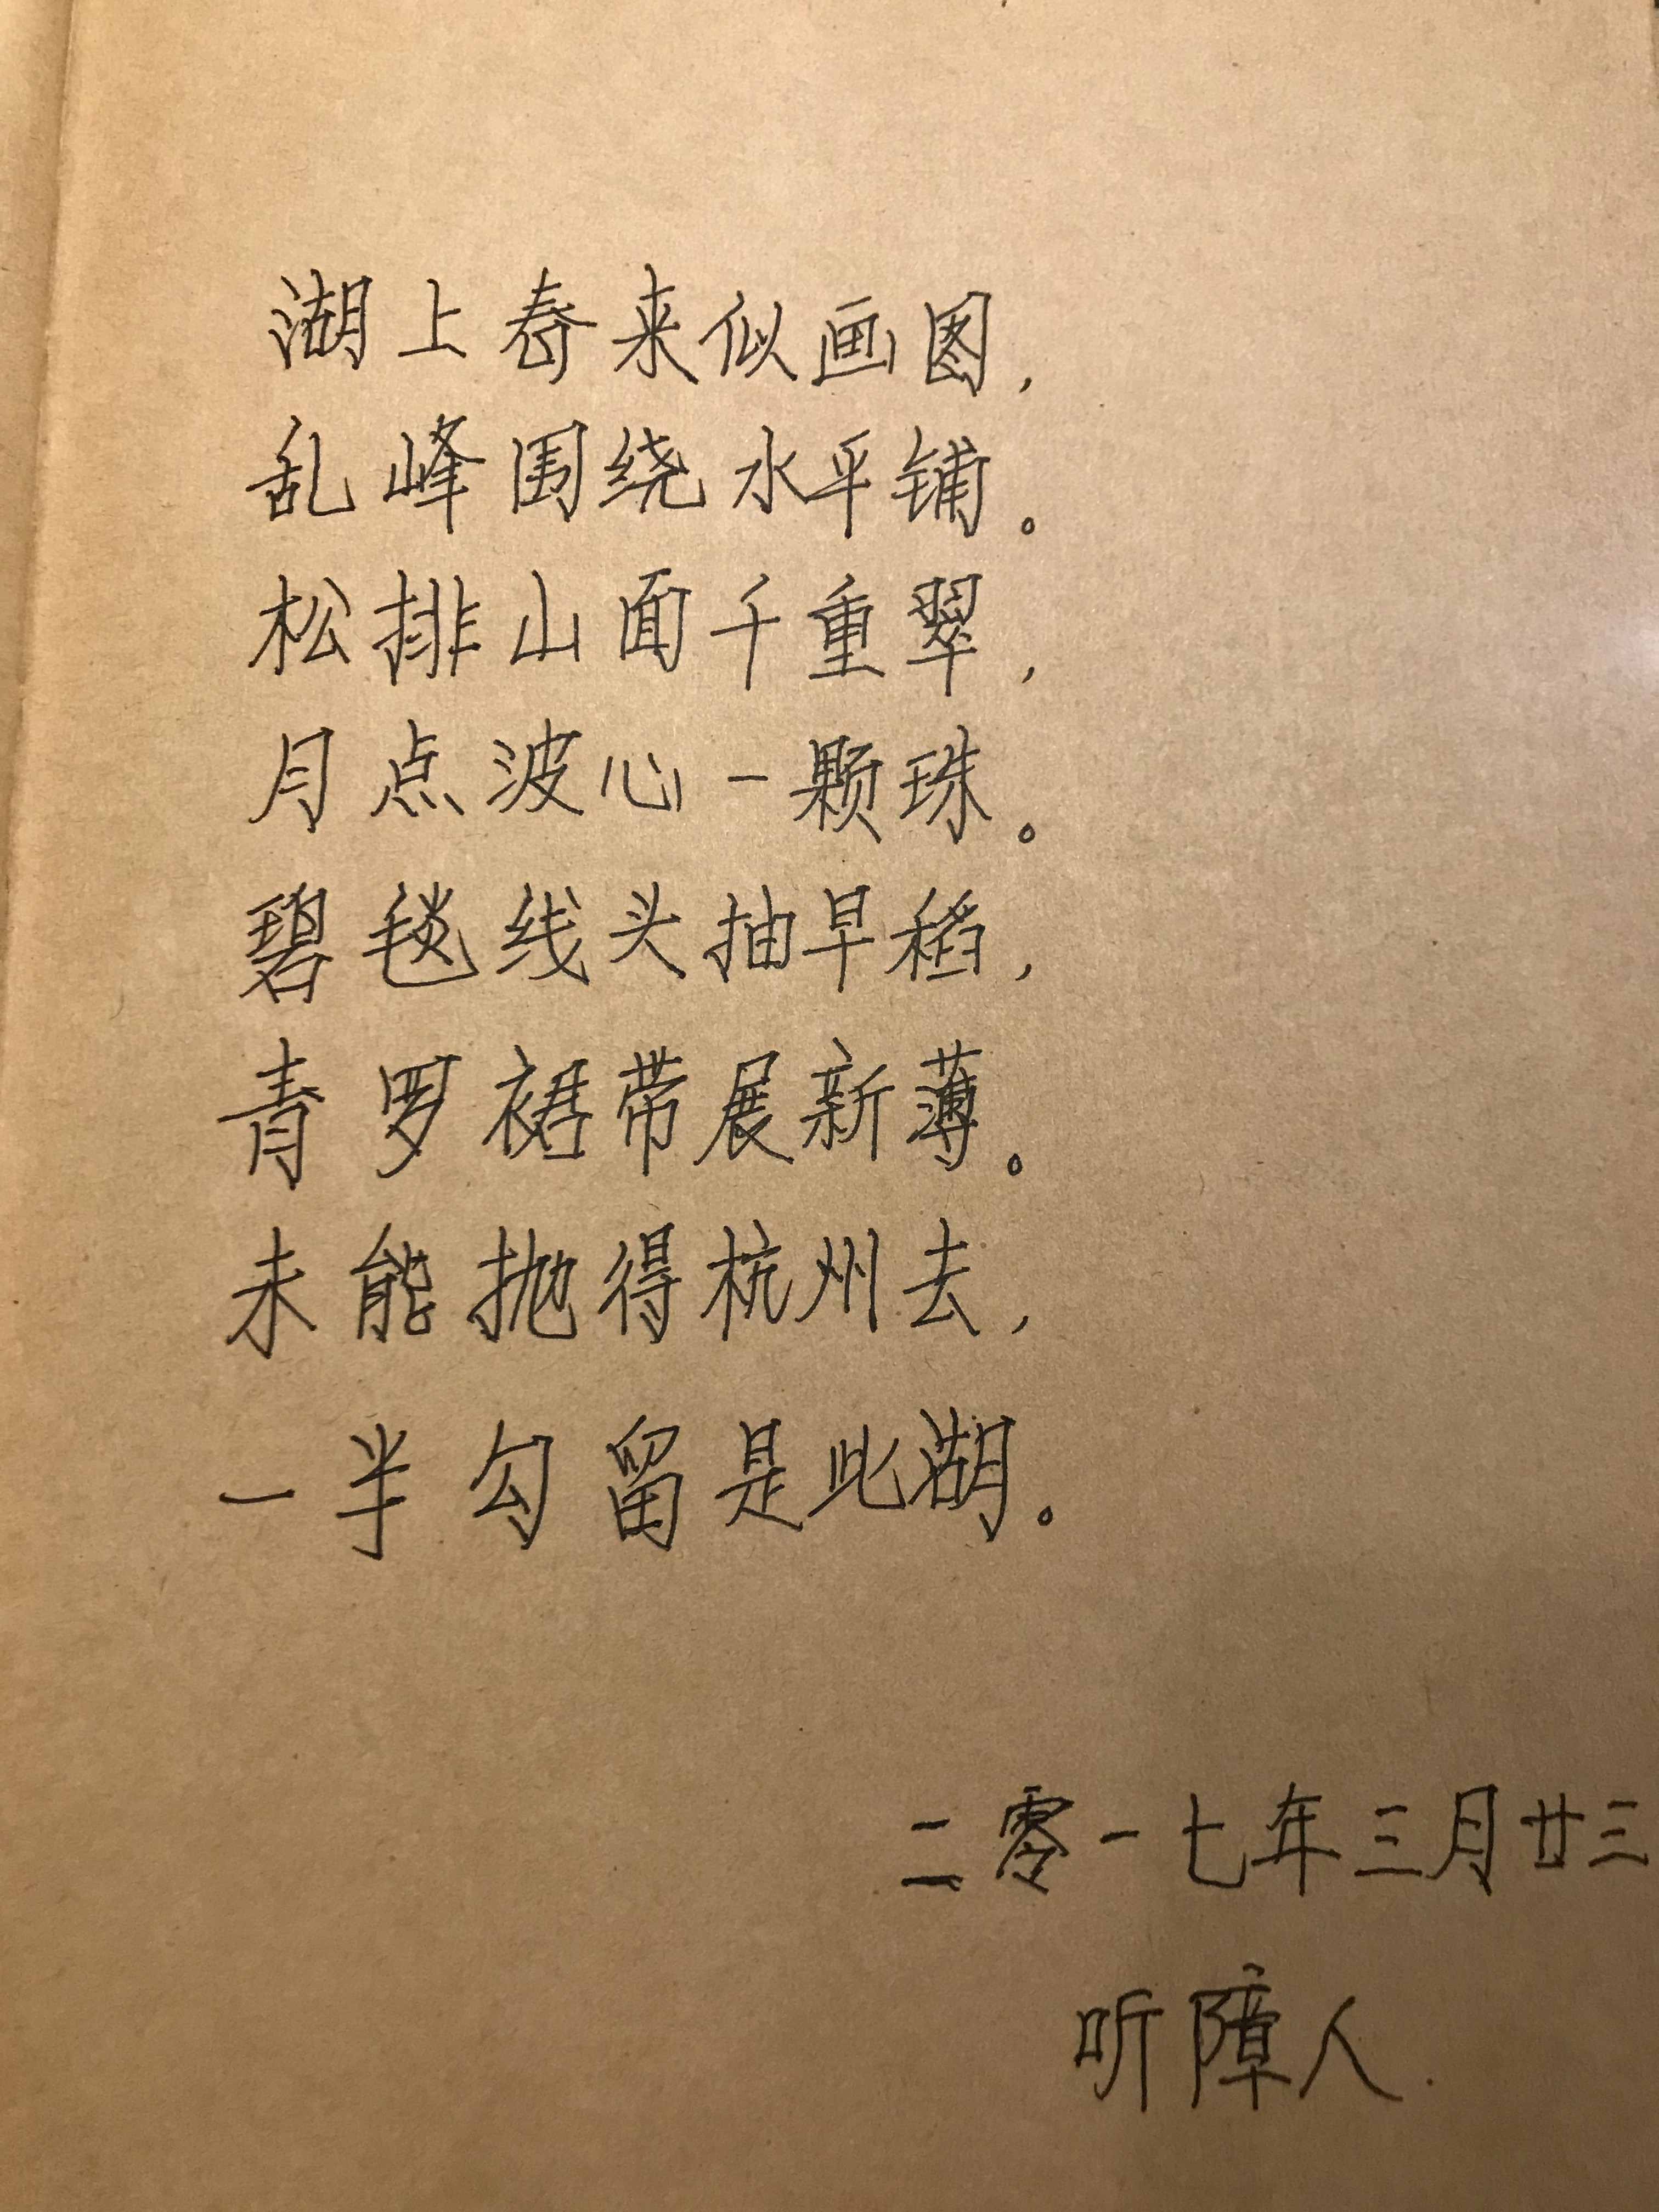 湖上春来似画图，
乱峰围绕水平铺。
松排山面千重翠，
月点波心一颗珠。
碧毯线头抽早稻，
青罗裙带展新薄。
未能抛得杭州去，
一半勾留是此湖。
二零一七年三月廿三
听障人.